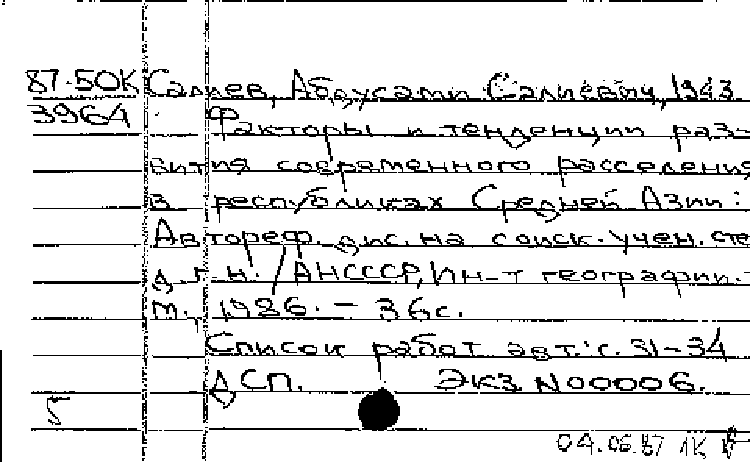 87-50К Салиев, Абдусами Салиевич, 1943
3964 Факторы и тенденции раз-
вития современного расселения
в республиках Средней Азии:
Автореф. дис. на соиск. учен. сте
д. г. н. / АНСССР, Ин-т географии. -
М., 1986. - 36 с.
Список работ авт.: с. 31-34
ДСП. Экз N00006.
5
04.06.87 1К